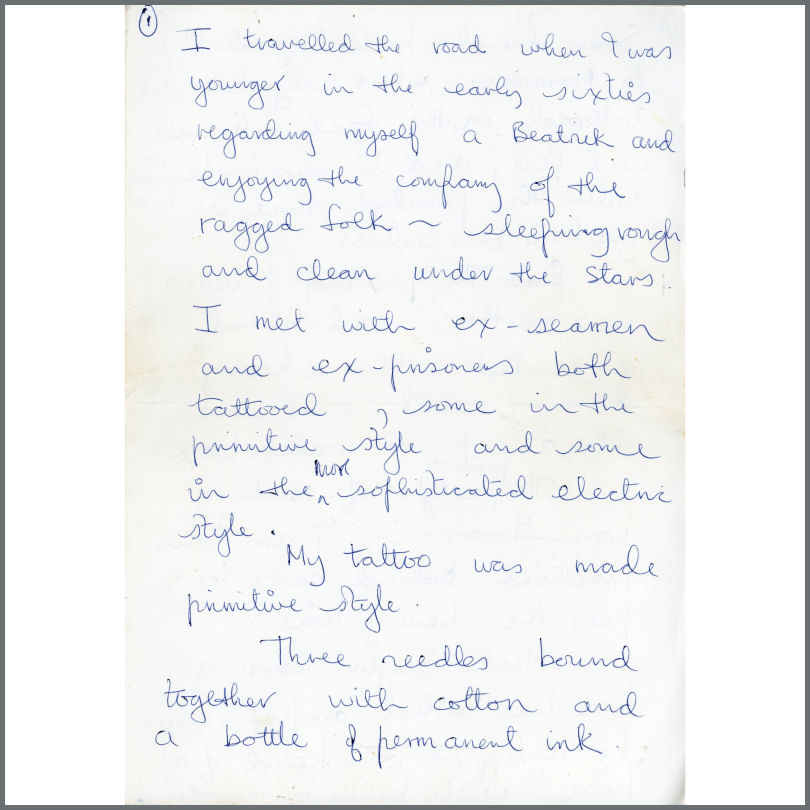 1
I travelled the road when I was
younger in the early sixties
regarding myself a Beatnik and
enjoying the company of the
ragged folk ~ sleeping rough
and clean under the stars.
I met with ex-seamen
and ex-prisoners both
tattooed, some in the
primitive style and some
in the more sophisticated electric
style.
My tattoo was made
primitive style.
Three needles bound
together with cotton and
a bottle of permanent ink.